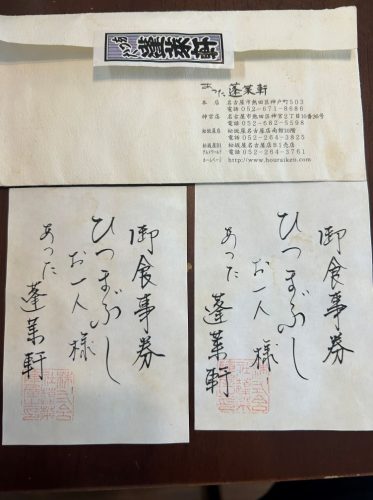 あつた 蓬莱軒
あつた 蓬莱軒
本店 名古屋市熱田区神戸町503
電話 052-671-8686
神宮店 名古屋市熱田区神宮2丁目10番26号
電話 052-682-5598
松坂屋店 松坂屋名古屋店南館10階
電話 052-264-3825
松坂屋B1 松坂屋名古屋店B1売店
グルメワールド 電話 052-264-3761
ホームページ http://www.houraiken.com
御食事券
ひつまぶし
お一人様
あつた 蓬莱軒
御食事券
ひつまぶし
お一人様
あつた 蓬莱軒